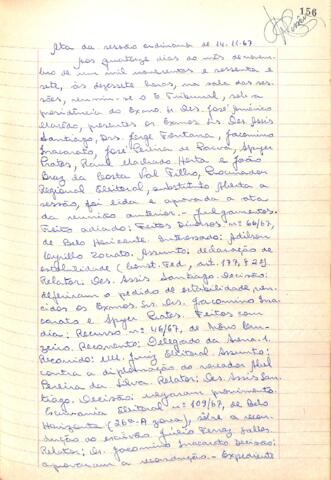 156
Ata da sessão ordinária de 14-11-67
Aos quatorze dias do mês de novem-
bro de um mil novecentos e sessenta e
sete, às dezessete horas, na sala das ses-
sões, reuniu-se o E. Tribunal, sob a
presidência do Exmo. Sr. Des. José Américo
Macêdo, presentes os Exmos. Srs. Des. Assis
Santiago, Drs. Jorge Fontana, Jacomino
Inacarato, José Pereira de Paiva, Spyer
Prates, Raul Machado Horta e João
Braz da Costa Val Filho, Procurador
Regional Eleitoral, substituto. Aberta a
sessão, foi lida e aprovada a ata
da reunião anterior. - Julgamentos.
Feito adiado: Feitos Diversos nº 66/67,
de Belo Horizonte. Interessado: Adilson
Zorato. Assunto: declaração de
estabilidade (Const. Fed., art. 177, § 2º).
Relator: Des. Assis Santiago. Decisão:
deferiram o pedido de estabilidade, ven-
cidos os Exmos. Srs. Drs. Jacomino Ina-
carato e Spyer Prates. Feitos com
dia: Recurso nº 46/67, de Novo Cru-
zeiro. Recorrente: Delegado da Arena-1.
Recorrido: MM. Juiz Eleitoral. Assunto:
contra a diplomação do vereador Abel
Pereira da Silva. Relator: Des. Assis San-
tiago. Decisão: negaram provimento.
Escrivania Eleitoral nº 109/67, de Belo
Horizonte (26ª zona), sôbre a recon-
dução do escrivão Júlio Ferraz Salles.
Relator: Dr. Jacomino Inacarato. Decisão:
aprovaram a recondução. - Expediente